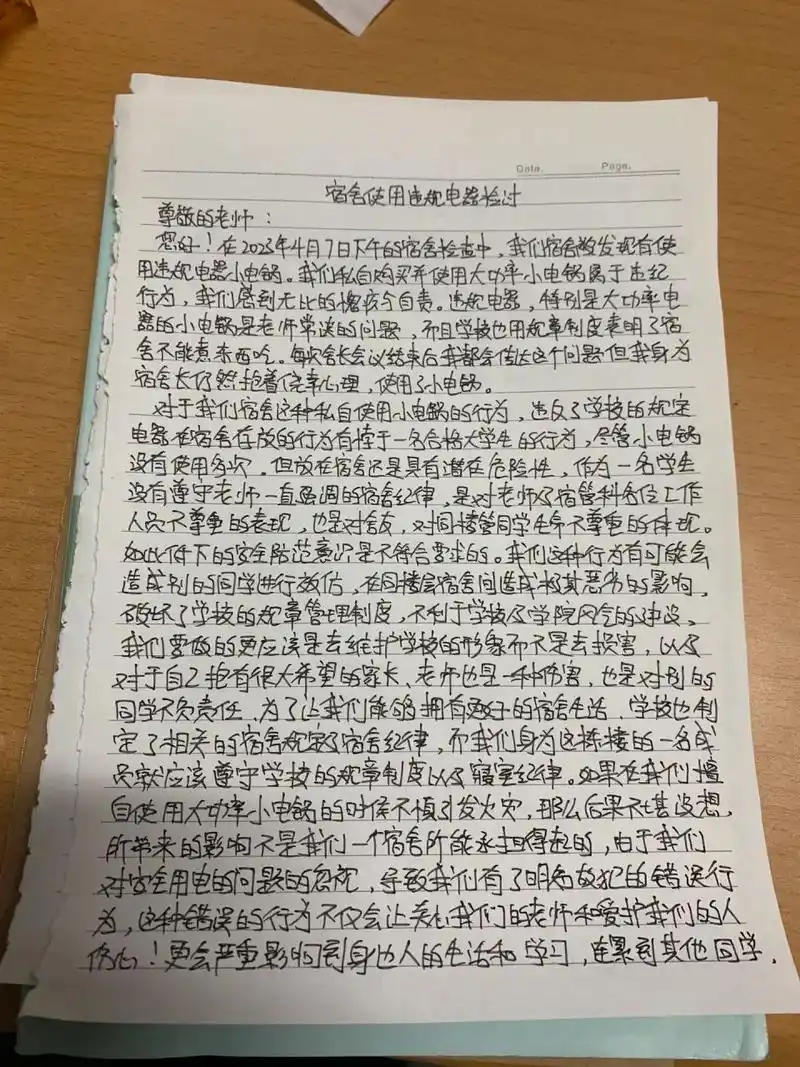 Date. Page.
宿舍使用违规电器检讨
尊敬的老师：
您好！在2023年4月7日下午的宿舍检查中，我们宿舍被发现有使
用违规电器小电锅。我们私自购买并使用大功率小电锅属于违纪
行为，我们感到无比的愧疚与自责。违规电器，特别是大功率电
器的小电锅是老师常谈的问题，而且学校也用规章制度表明了宿
舍不能煮东西吃。每次舍长会议结束后我都会传达这个问题但我身为
宿舍长仍然抱着侥幸心理，使用了小电锅。
对于我们宿舍这种私自使用小电锅的行为，违反了学校的规定
电器在宿舍存放的行为有悖于一名合格大学生的行为，尽管小电锅
没有使用多次，但放在宿舍还是具有潜在危险性，作为一名学生
没有遵守老师一直强调的宿舍纪律，是对老师及宿管科各位工作
人员不尊重的表现，也是对舍友，对同楼管同学生命不尊重的体现。
如此件下的安全防范意识是不符合要求的。我们这种行为有可能会
造成别的同学进行效仿，在同楼层宿舍间造成极其恶劣的影响，
破坏了学校的规章管理制度，不利于学校及学院风气的建设。
我们要做的更应该是去维护学校的形象而不是去损害，以及
对于自己抱有很大希望的家长、老师也是一种伤害，也是对别的
同学不负责任，为了让我们能够拥有更好的宿舍生活，学校也制
定了相关的宿舍规定及宿舍纪律，而我们身为这栋楼的一名成
员就应该遵守学校的规章制度以及寝室纪律。如果在我们擅
自使用大功率小电锅的时候不慎引发火灾，那么后果不堪设想，
所带来的影响不是我们一个宿舍所能承担得起的，由于我们
对安全用电的问题的忽视，导致我们有了明知故犯的错误行
为，这种错误的行为不仅会让关心我们的老师和爱护我们的人
伤心！更会严重影响到身边人的生活和学习，连累到其他同学，